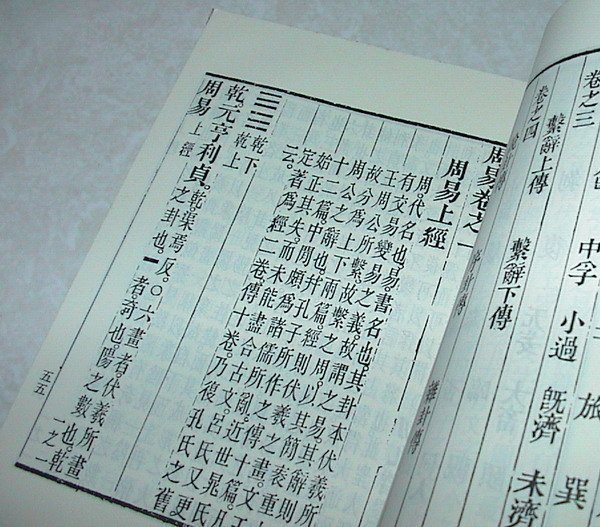 卷之三
旅 巽
中孚 小過 旣濟 未濟
繫辭上傳
卷之四
繫辭下傳
周易卷之一
周易上經
周代名也。易書名也。其卦本伏羲所
有交易變易之義。故謂之易。其辭則
王周公所繫。故繫之周。以其簡袠重
故分爲上下兩篇。經則伏羲之畫。文
周公之辭也。并孔子所作之傳十篇。凡
十二篇。中間頗爲諸儒所亂。近世晁氏
始正其失。而未能盡合古文。呂氏又更
定著爲經二卷。傳十卷。乃復孔氏之舊
云。
☰☰ 乾下乾上
乾元亨利貞。乾渠焉反。○六畫者伏羲所畫之卦也。一者奇也。陽之數也。乾
周易上經
五五